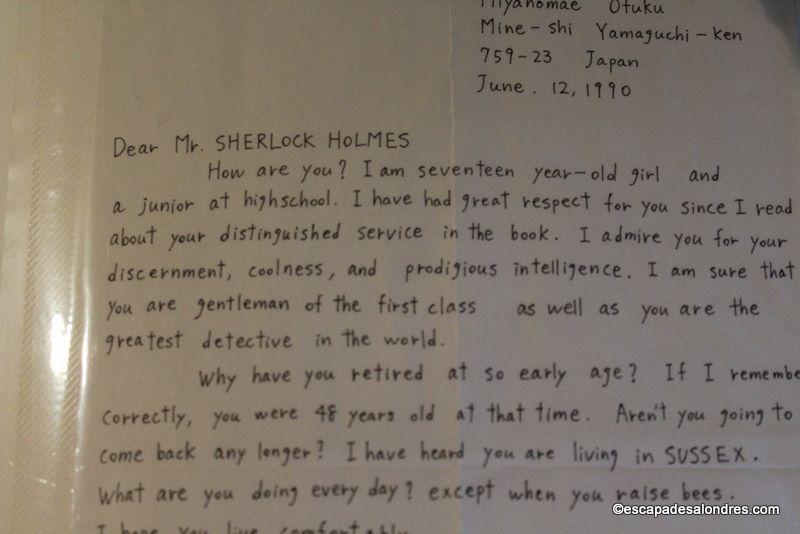 Miyanomae Ofuku
Mine-shi Yamaguchi-ken
759-23 Japan
June. 12, 1990
Dear Mr. SHERLOCK HOLMES
How are you? I am seventeen year-old girl and
a junior at highschool. I have had great respect for you since I read
about your distinguished service in the book. I admire you for your
discernment, coolness, and prodigious intelligence. I am sure that
you are gentleman of the first class as well as you are the
greatest detective in the world.
Why have you retired at so early age? If I remembe
Correctly, you were 48 years old at that time. Aren't you going to
come back any longer? I have heard you are living in SUSSEX.
What are you doing every day? except when you raise bees.
I hope you live comfortably
©escapadesalondres.com